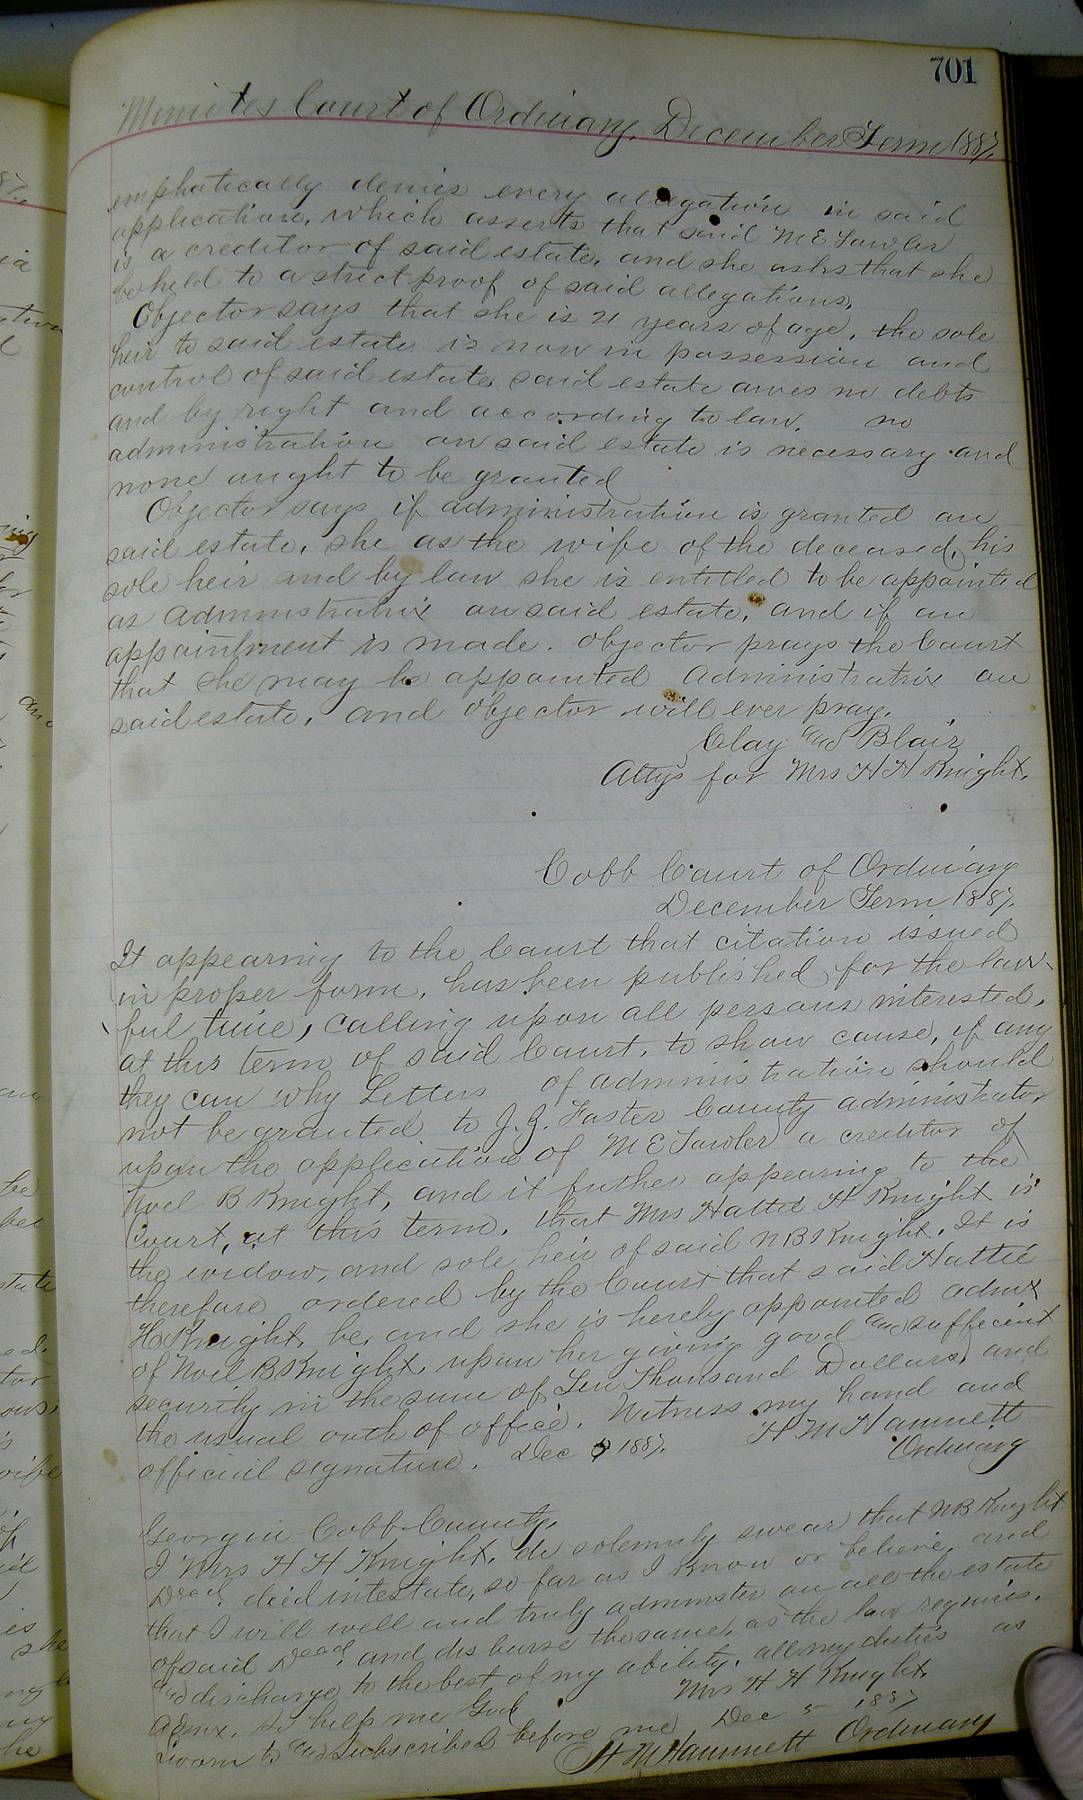 701
Minutes Court of Ordinary, December Term 1887.
emphatically denies every allegation in said
application, which asserts that said M E Lawler
is a creditor of said estate, and she asks that she
be held to a strict proof of said allegations,
Objector says that she is 21 years of age, the sole
heir to said estate is now in possession and
control of said estate, said estate owes no debts
and by right and according to law, no
administration on said estate is necessary and
none ought to be granted
Objector says if administration is granted on
said estate, she as the wife of the deceased, his
sole heir and by law she is entitled to be appointed
as administratrix on said estate, and if an
appointment is made. Objector prays the Court
that she may be appointed administratrix on
said estate, and objector will ever pray.
Clay and Blair
Attys for Mrs H H Knight,
Cobb Court of Ordinary
December Term 1887.
It appearing to the Court that citation issued
in proper form, has been published for the law-
ful time, calling upon all persons interested,
at this term of said Court, to show cause, if any
they can why Letters of administration should
not be granted to J. G. Foster County administrator
upon the application of M E Lawler a creditor of
Noel B Knight, and it futher appearing to the
Court, at this term, that Mrs Hattie H Knight is
the widow, and sole heir of said N B Knight, It is
therefore ordered by the Court that said Hattie
H Knight, be, and she is hereby appointed admx
of Noel B Knight, upon her giving good and sufficient
security in the sum of Ten Thousand Dollars, and
the usual oath of office. Witness my hand and
official signature. Dec 5 1887. H M Hammett
Ordinary
Georgia Cobb County,
I Mrs H H Knight, do solemnly swear that N B Knight
Decd, died intestate, so far as I know or believe, and
that I will well and truly administer on all the estate
of said Decd, and disburse the same, as the law requires,
and discharge to the best of my ability, all my duties as
Admx. So help me God. Mrs H H Knight,
Sworn to and Subscribed before me Dec 5 1887
H M Hammett Ordinary